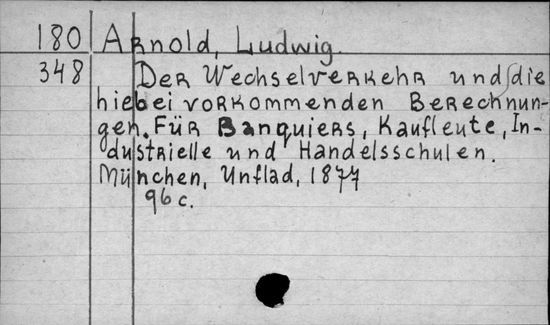 180 Arnold, Ludwig.
348 Der Wechselverkehr und die
hiebei vorkommenden Berechnun-
gen. Für Banquiers, Kaufleute, In-
dustrielle und Handelsschulen.
München, Unflad, 1877
96 c.